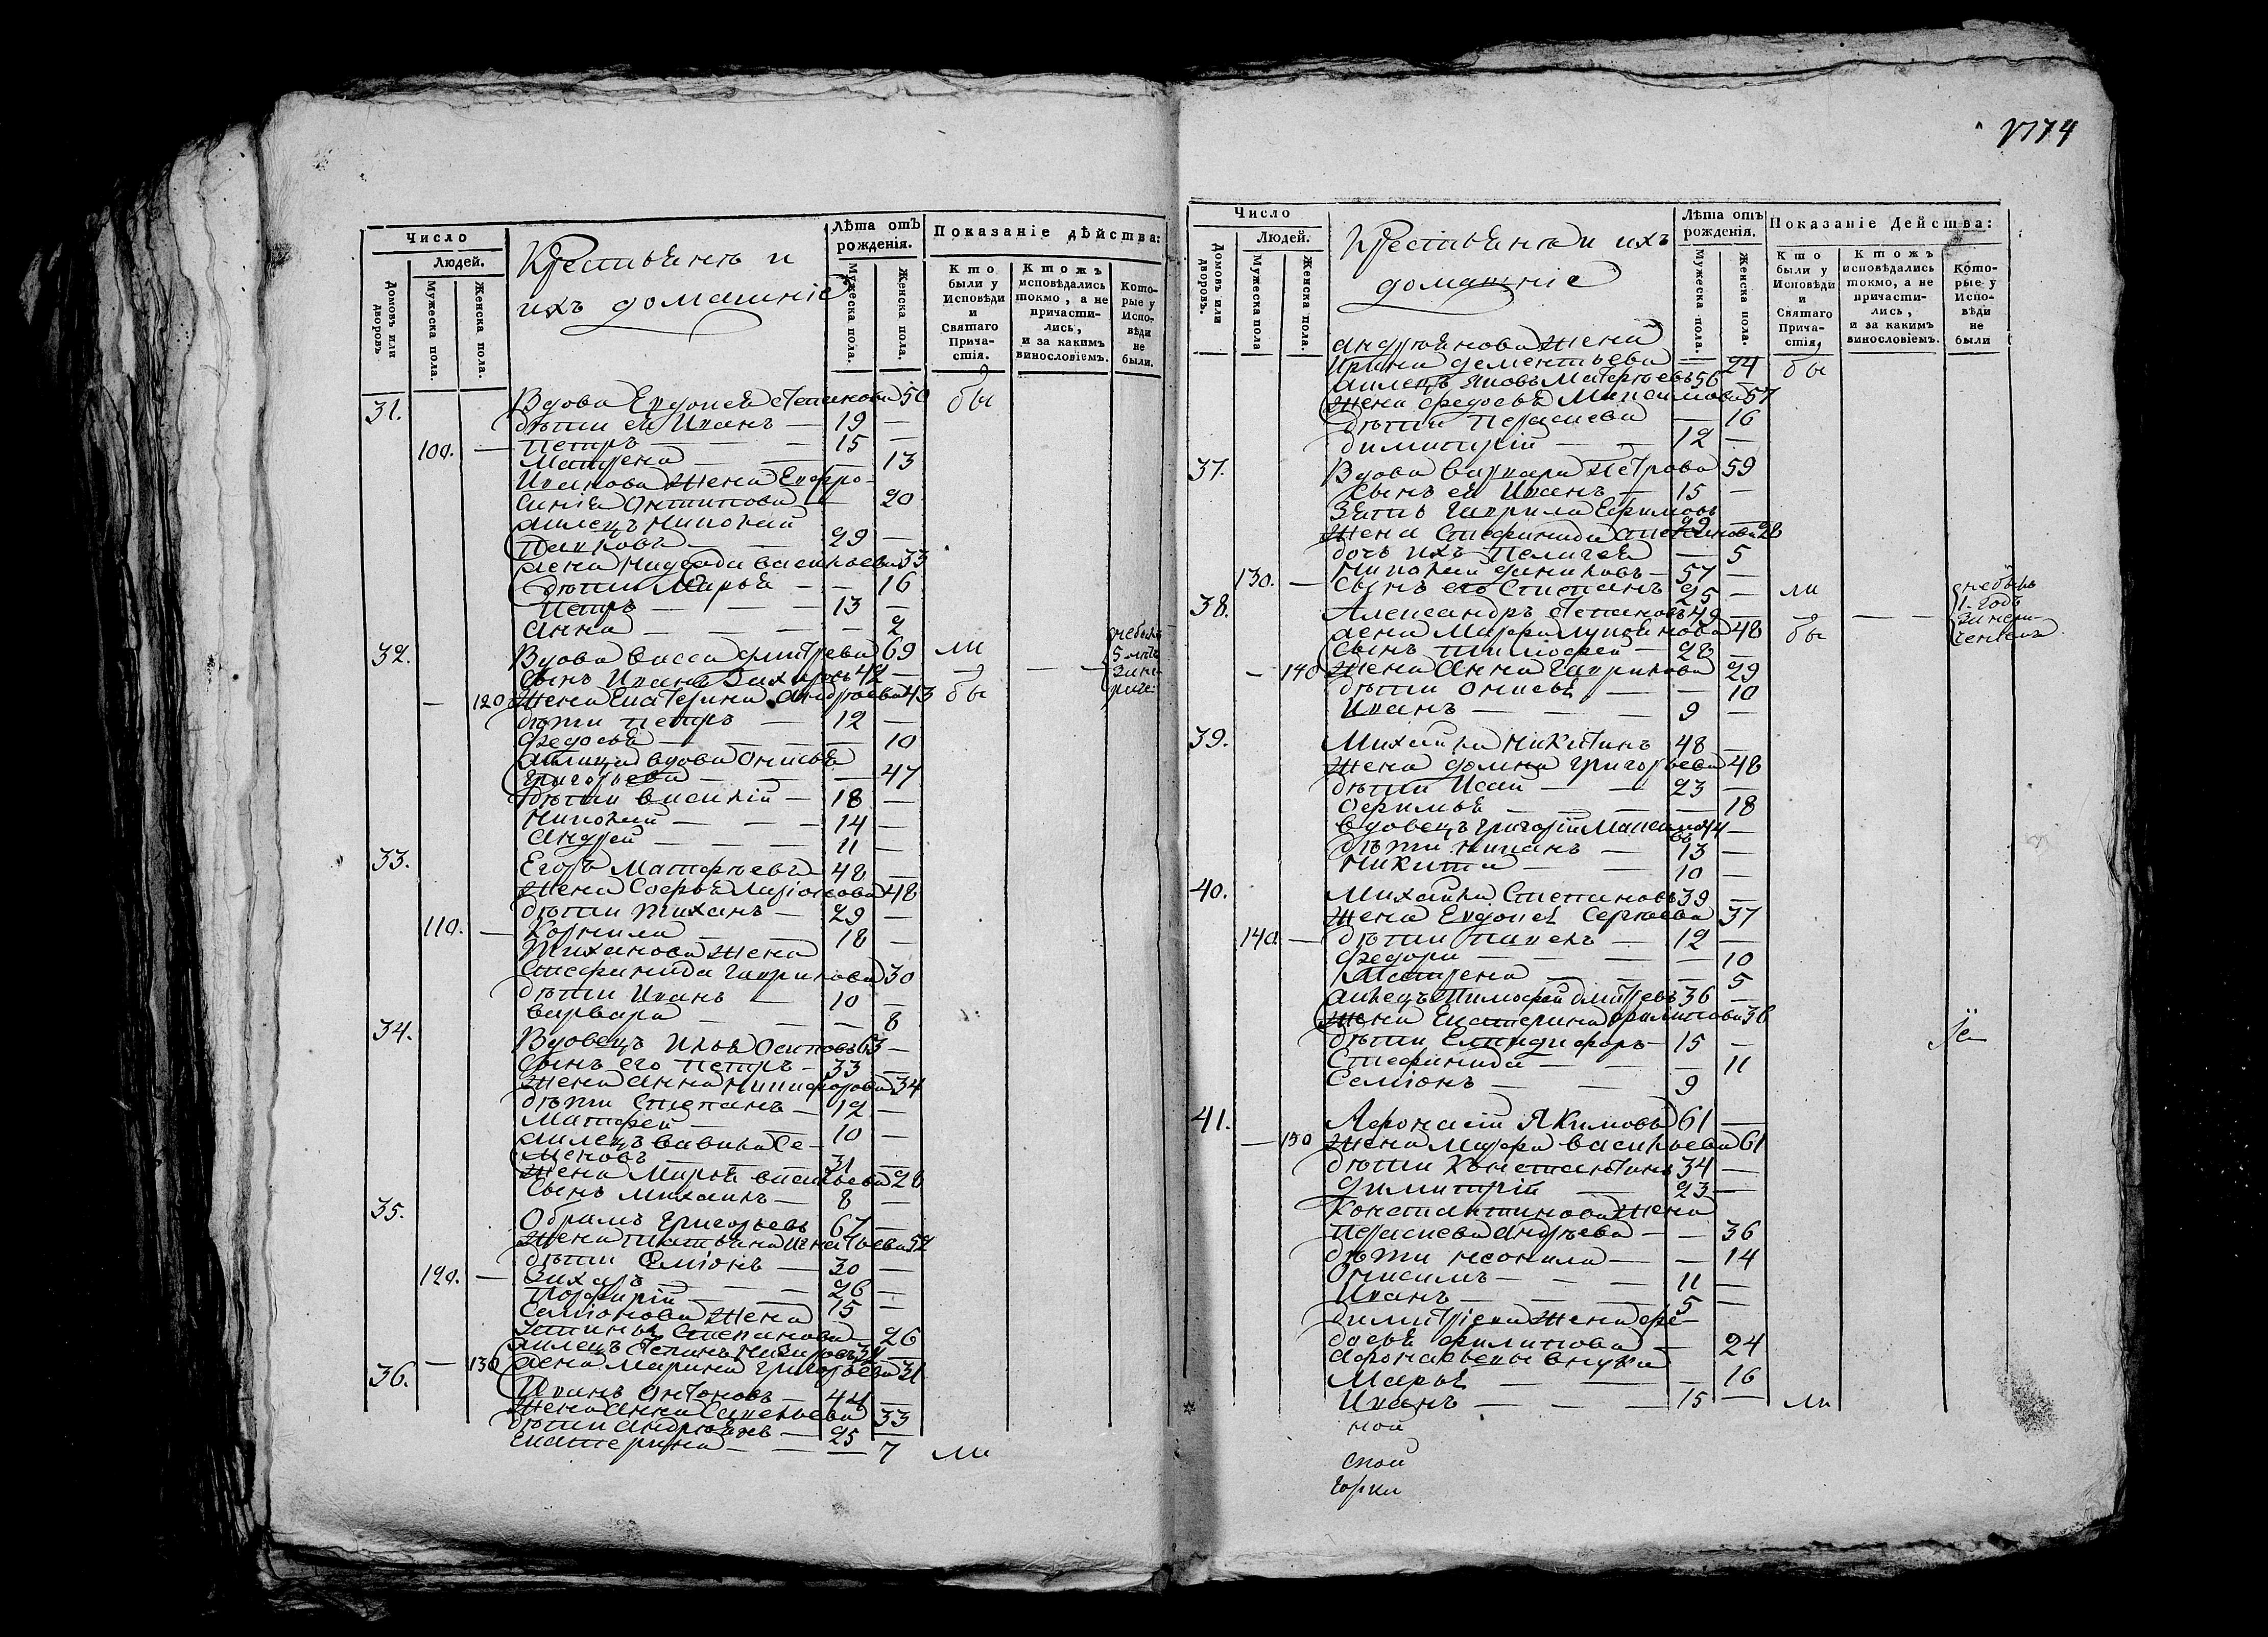 1774
Число
Людей.
Домовъ или дворовъ.
Мужеска пола.
Женска пола.
Крестьянъ и
ихъ домашние
Лѣта отъ
рожденія.
Мужеска пола.
Женска пола.
Показаніе дѣйства:
Кто были у Исповѣди и Святаго Прича-стія.
Ктожъ исповѣдались токмо, а не причасти-лись, и за какимъ винословіемъ.
Кото-рые у Испо-вѣди не были.
31. Вдова Евдокея Степанова 50 бы
дѣти ей Иванъ — 19 —
100. — Петръ — — — 15 —
Матрена — — — 13
Иванова жена Евфро-
синія Онтипова — 20
Николай
29 —
жена василиева 33
дѣти Марья — — 16
Петръ — — — 13 —
Анна — — — — 2
32. Вдова васса дмитрева 69 ли
сынъ Иванъ Захаровъ 42 — — —
— 120 жена Екатерина Андрѣева 43 бы
дѣти Петръ — 12 —
Федосья — — — — 10
вдова Онисья
Григорьева — — — 47
дѣти василий — 18 —
Николай — — — 14 —
Андрей — — — 11 —
33. Егоръ Матфѣевъ 48 —
жена Софья Ларіонова 48
дѣти Тиханъ — 29 —
110. — Корнила — — 18 —
Тиханова жена
Стефанида Гаврилова 30
дѣти Иванъ — 10 —
варвара — — — 8
34. Вдовецъ Илья Осиповъ 63 —
сынъ его Петръ — 33 —
жена Анна Никифорова 34
дѣти Степанъ — 12 —
Матфей — — 10 —
вавила Се-
меновъ — — 31 —
жена Марья васильева 28
сынъ Михаилъ — 8 —
35. Обрамъ Григорьевъ 67 —
жена татьяна Игнатьева 52
дѣти Семіонъ — 30 —
120. — Захаръ — — — 26 —
Порфирій — — — 15 —
Семіонова жена
устинья Степанова — 26
— 130 жена Марина григорьева 31
36. Иванъ Онтоновъ — 44 —
жена Анна Савельева 33
дѣти Андреянъ — 25 —
Екатерина — — — 7 ли
Число
Людей.
Домовъ или дворовъ.
Мужеска пола
Женска пола.
Крестьянъ и ихъ
домашние
Лѣта отъ
рожденія.
Мужеска пола.
Женска пола.
Показаніе Действа:
Кто были у Исповѣди и Святаго Прича-стія,
Ктожъ исповѣдались токмо, а не причасти-лись, и за какимъ винословіемъ.
Кото-рые у Испо-вѣди не были
Андреянова жена
Ирина дементьева — 24 бы
Яковъ Матфѣевъ 56
жена федосья Максимова 57
дѣти Прасковья — 16
димитрій — — 12 —
37. Вдова варвара Петрова 59
сынъ ей Иванъ — 15 —
Зять Гаврила Ефимовъ
29 —
жена Стефанида Степанова 28
дочь ихъ Пелагея — 5
Николай даниловъ — 57 —
130. — сынъ его Степанъ 25 — ли
38. Александръ Степановъ 49 — — —
жена Марфа Лукоянова 48 бы
сынъ Тимофей — 28 —
— 140 жена Анна Гаврилова 29
дѣти Онисья — — 10
Иванъ — — — 9 —
39. Михайла Никитинъ 48 —
жена домна Григорьева 48
дѣти Исай — — 23 —
Офимья — — — 18
вдовецъ Григорій Максимо 44 —
въ
дѣти Иванъ — 13 —
Никита — — 10 —
40. Михайла Степановъ 39 —
жена Евдокея Сергѣева 37
140. — дѣти Павелъ — 12 —
Федора — — — — 10
Матрена — — — 5
Тимофей дмитревъ 36 —
жена Екатерина Филипова 38
дѣти Елпидифоръ — 15 —
Стефанида — — — 11
Семіонъ — — — 9
41. Афонасій Якимовъ 61 —
— 150 жена Марфа васильева 61
дѣти Константинъ 34 —
Димитрій — 23 —
Константинова жена
Прасковья Андрѣева — — 36
дѣти неонила — — 14
Онисимъ — — — 11 —
Иванъ — — — 5 —
димитріева жена фе-
досья филипова — 24
Афонасьевы внуки
Марья — — — 16
Иванъ — — — 15 — ли
ной
ской
горки